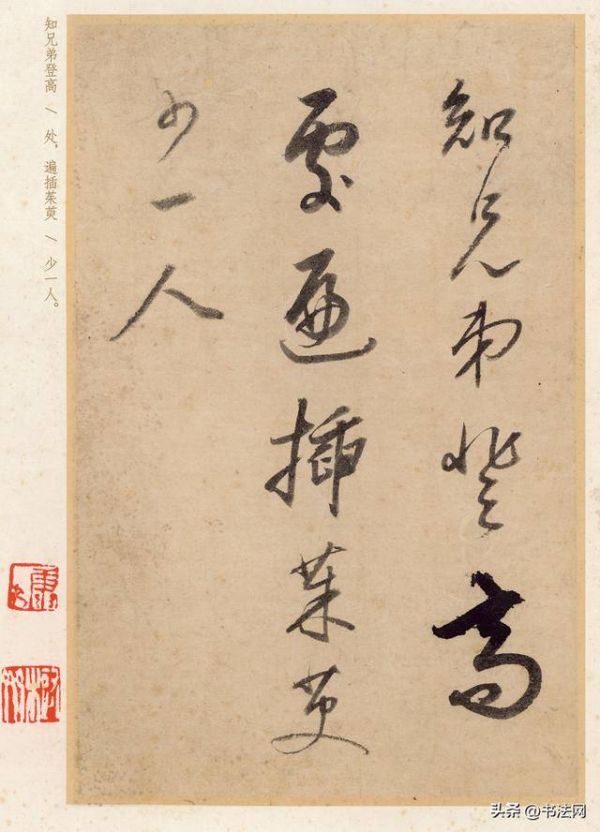 知兄弟登高
處遍插茱萸
少一人
知兄弟登高 \ 处，遍插茱萸 \ 少一人。
头条 @书法网